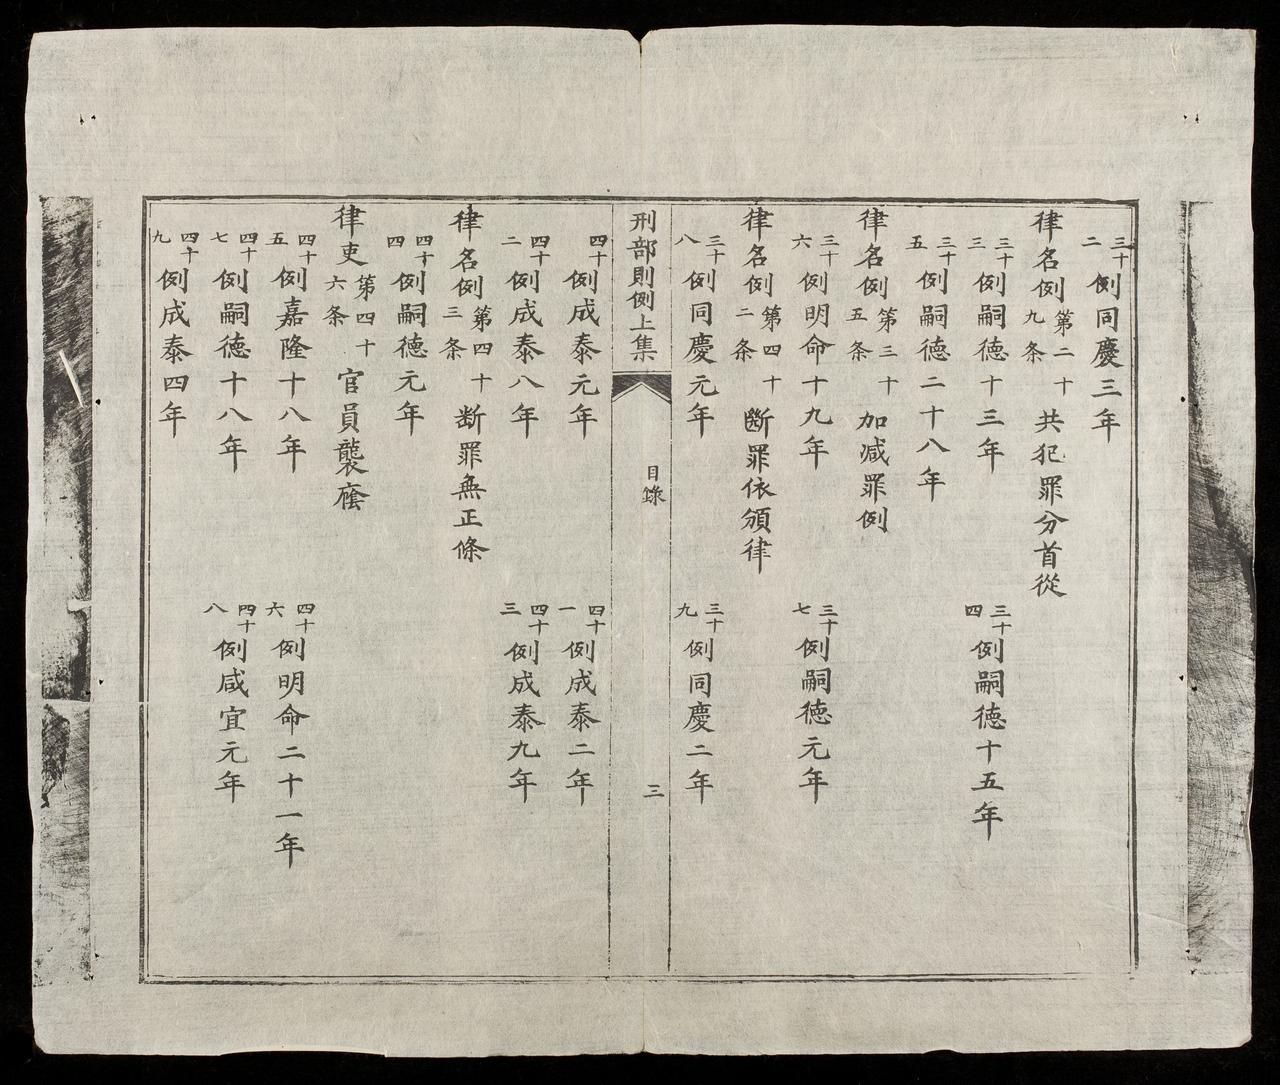 三十二例同慶三年
律名例第二十九条共犯罪分首從
三十三例嗣徳十三年 三十四例嗣徳十五年
三十五例嗣徳二十八年
律名例第三十五条加减罪例
三十六例明命十九年 三十七例嗣徳元年
律名例第四十二条斷罪依頒律
三十八例同慶元年 三十九例同慶二年
刑部則例上集 目錄 三
四十例成泰元年 四十一例成泰二年
四十二例成泰八年 四十三例成泰九年
律名例第四十三条断罪無正條
四十四例嗣徳元年
律吏第四十六条官員襲廕
四十五例嘉隆十八年 四十六例明命二十一年
四十七例嗣徳十八年 四十八例咸宜元年
四十九例成泰四年